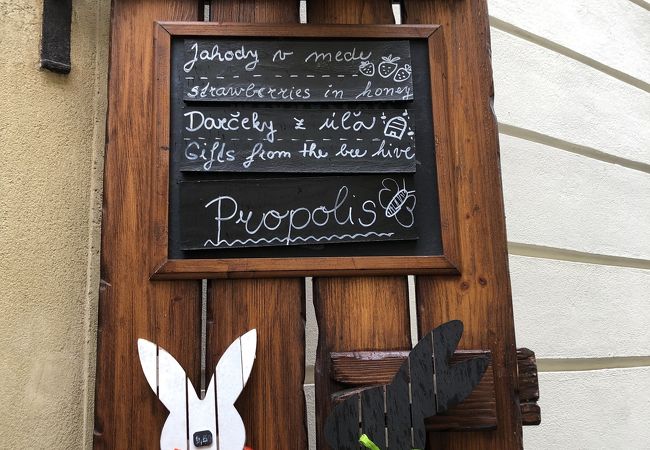 Jahody v mede
strawberries in honey
Darčeky z úľa
Gifts from the bee hive
Propolis